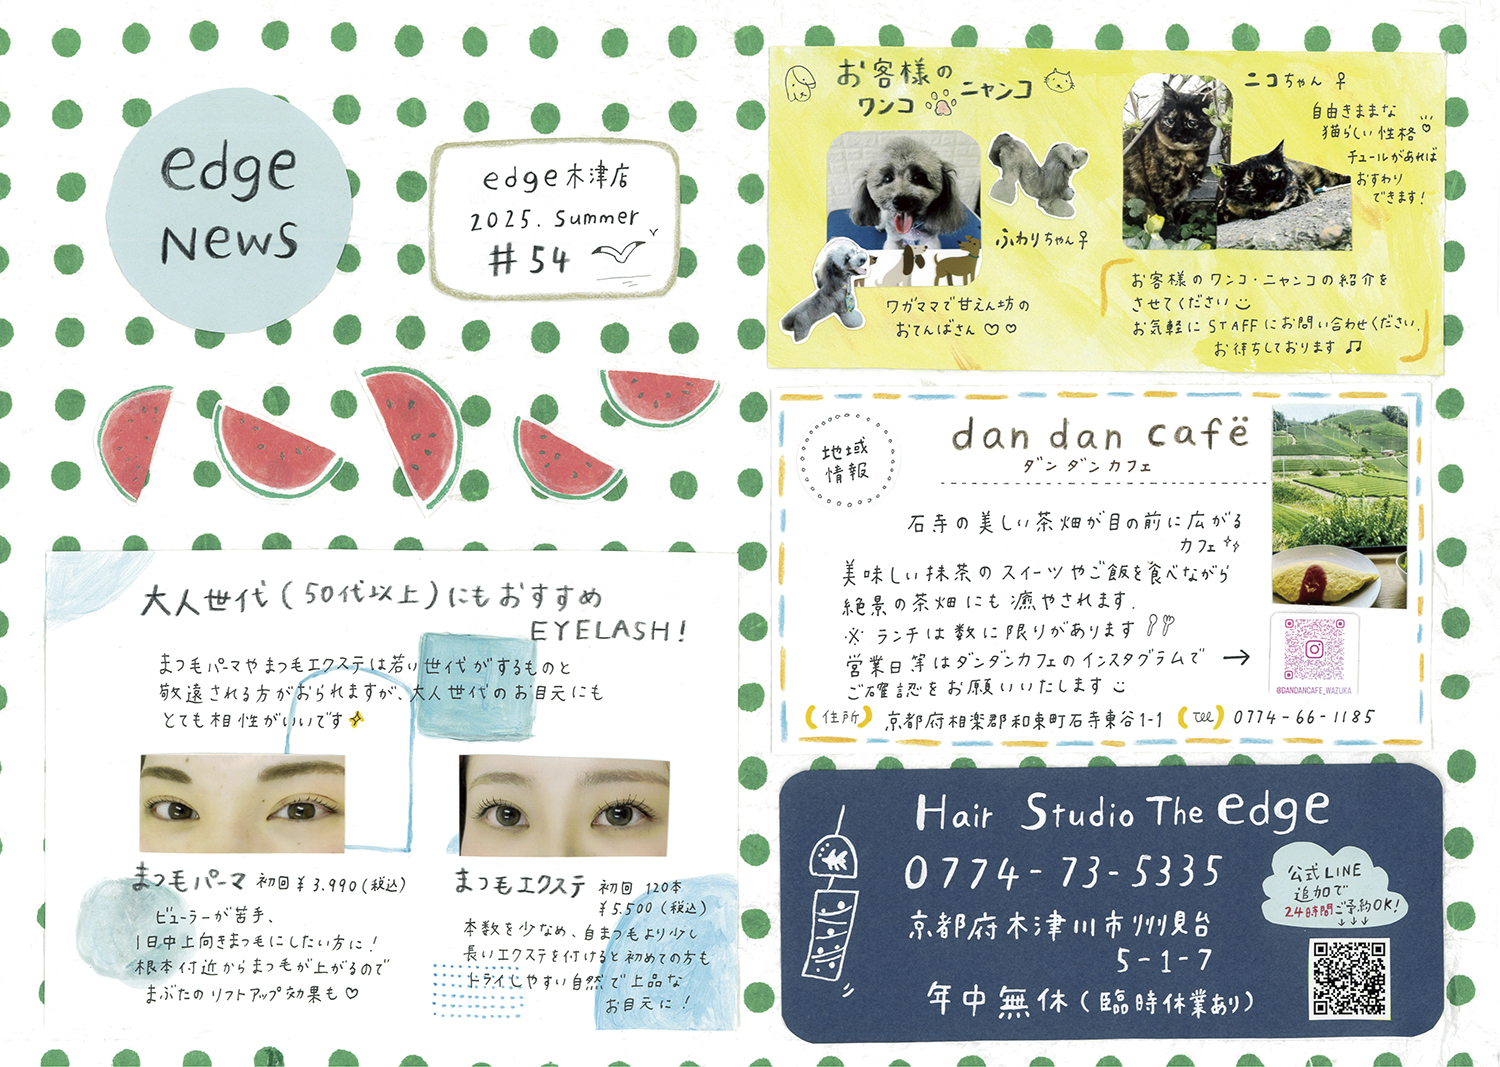 edge
News
edge木津店
2025. Summer
#54
大人世代(50代以上)にもおすすめ
EYELASH!
まつ毛パーマやまつ毛エクステは若い世代がするものと
敬遠される方がおられますが、大人世代のお目元にも
とても相性がいいです
まつ毛パーマ 初回¥3.990(税込)
ビューラーが苦手、
1日中上向きまつ毛にしたい方に!
根本付近からまつ毛が上がるので
まぶたのリフトアップ効果も♡
まつ毛エクステ 初回 120本
¥5.500(税込)
本数を少なめ、自まつ毛より少し
長いエクステを付けると初めての方も
トライしやすい自然で上品な
お目元に!
お客様の
ワンコ ニャンコ
ふわりちゃん♀
ワガママで甘えん坊の
おてんばさん♡♡
ニコちゃん♀
自由きままな
猫らしい性格♡
チュールがあれば
おすわり
できます!
「お客様のワンコ・ニャンコの紹介を
させてください
お気軽にSTAFFにお問い合わせください.
お待ちしております♫」
地域
情報
dan dan cafë
ダンダンカフェ
石寺の美しい茶畑が目の前に広がる
カフェ
美味しい抹茶のスイーツやご飯を食べながら
絶景の茶畑にも癒やされます.
※ランチは数に限りがあります
営業日等はダンダンカフェのインスタグラムで →
ご確認をお願いいたします
@DANDANCAFE_WAZUKA
(住所) 京都府相楽郡和束町石寺東谷1-1 (TEL) 0774-66-1185
Hair Studio The edge
0774-73-5335
京都府木津川市州見台
5-1-7
年中無休(臨時休業あり)
公式LINE
追加で
24時間ご予約OK!
↓↓↓